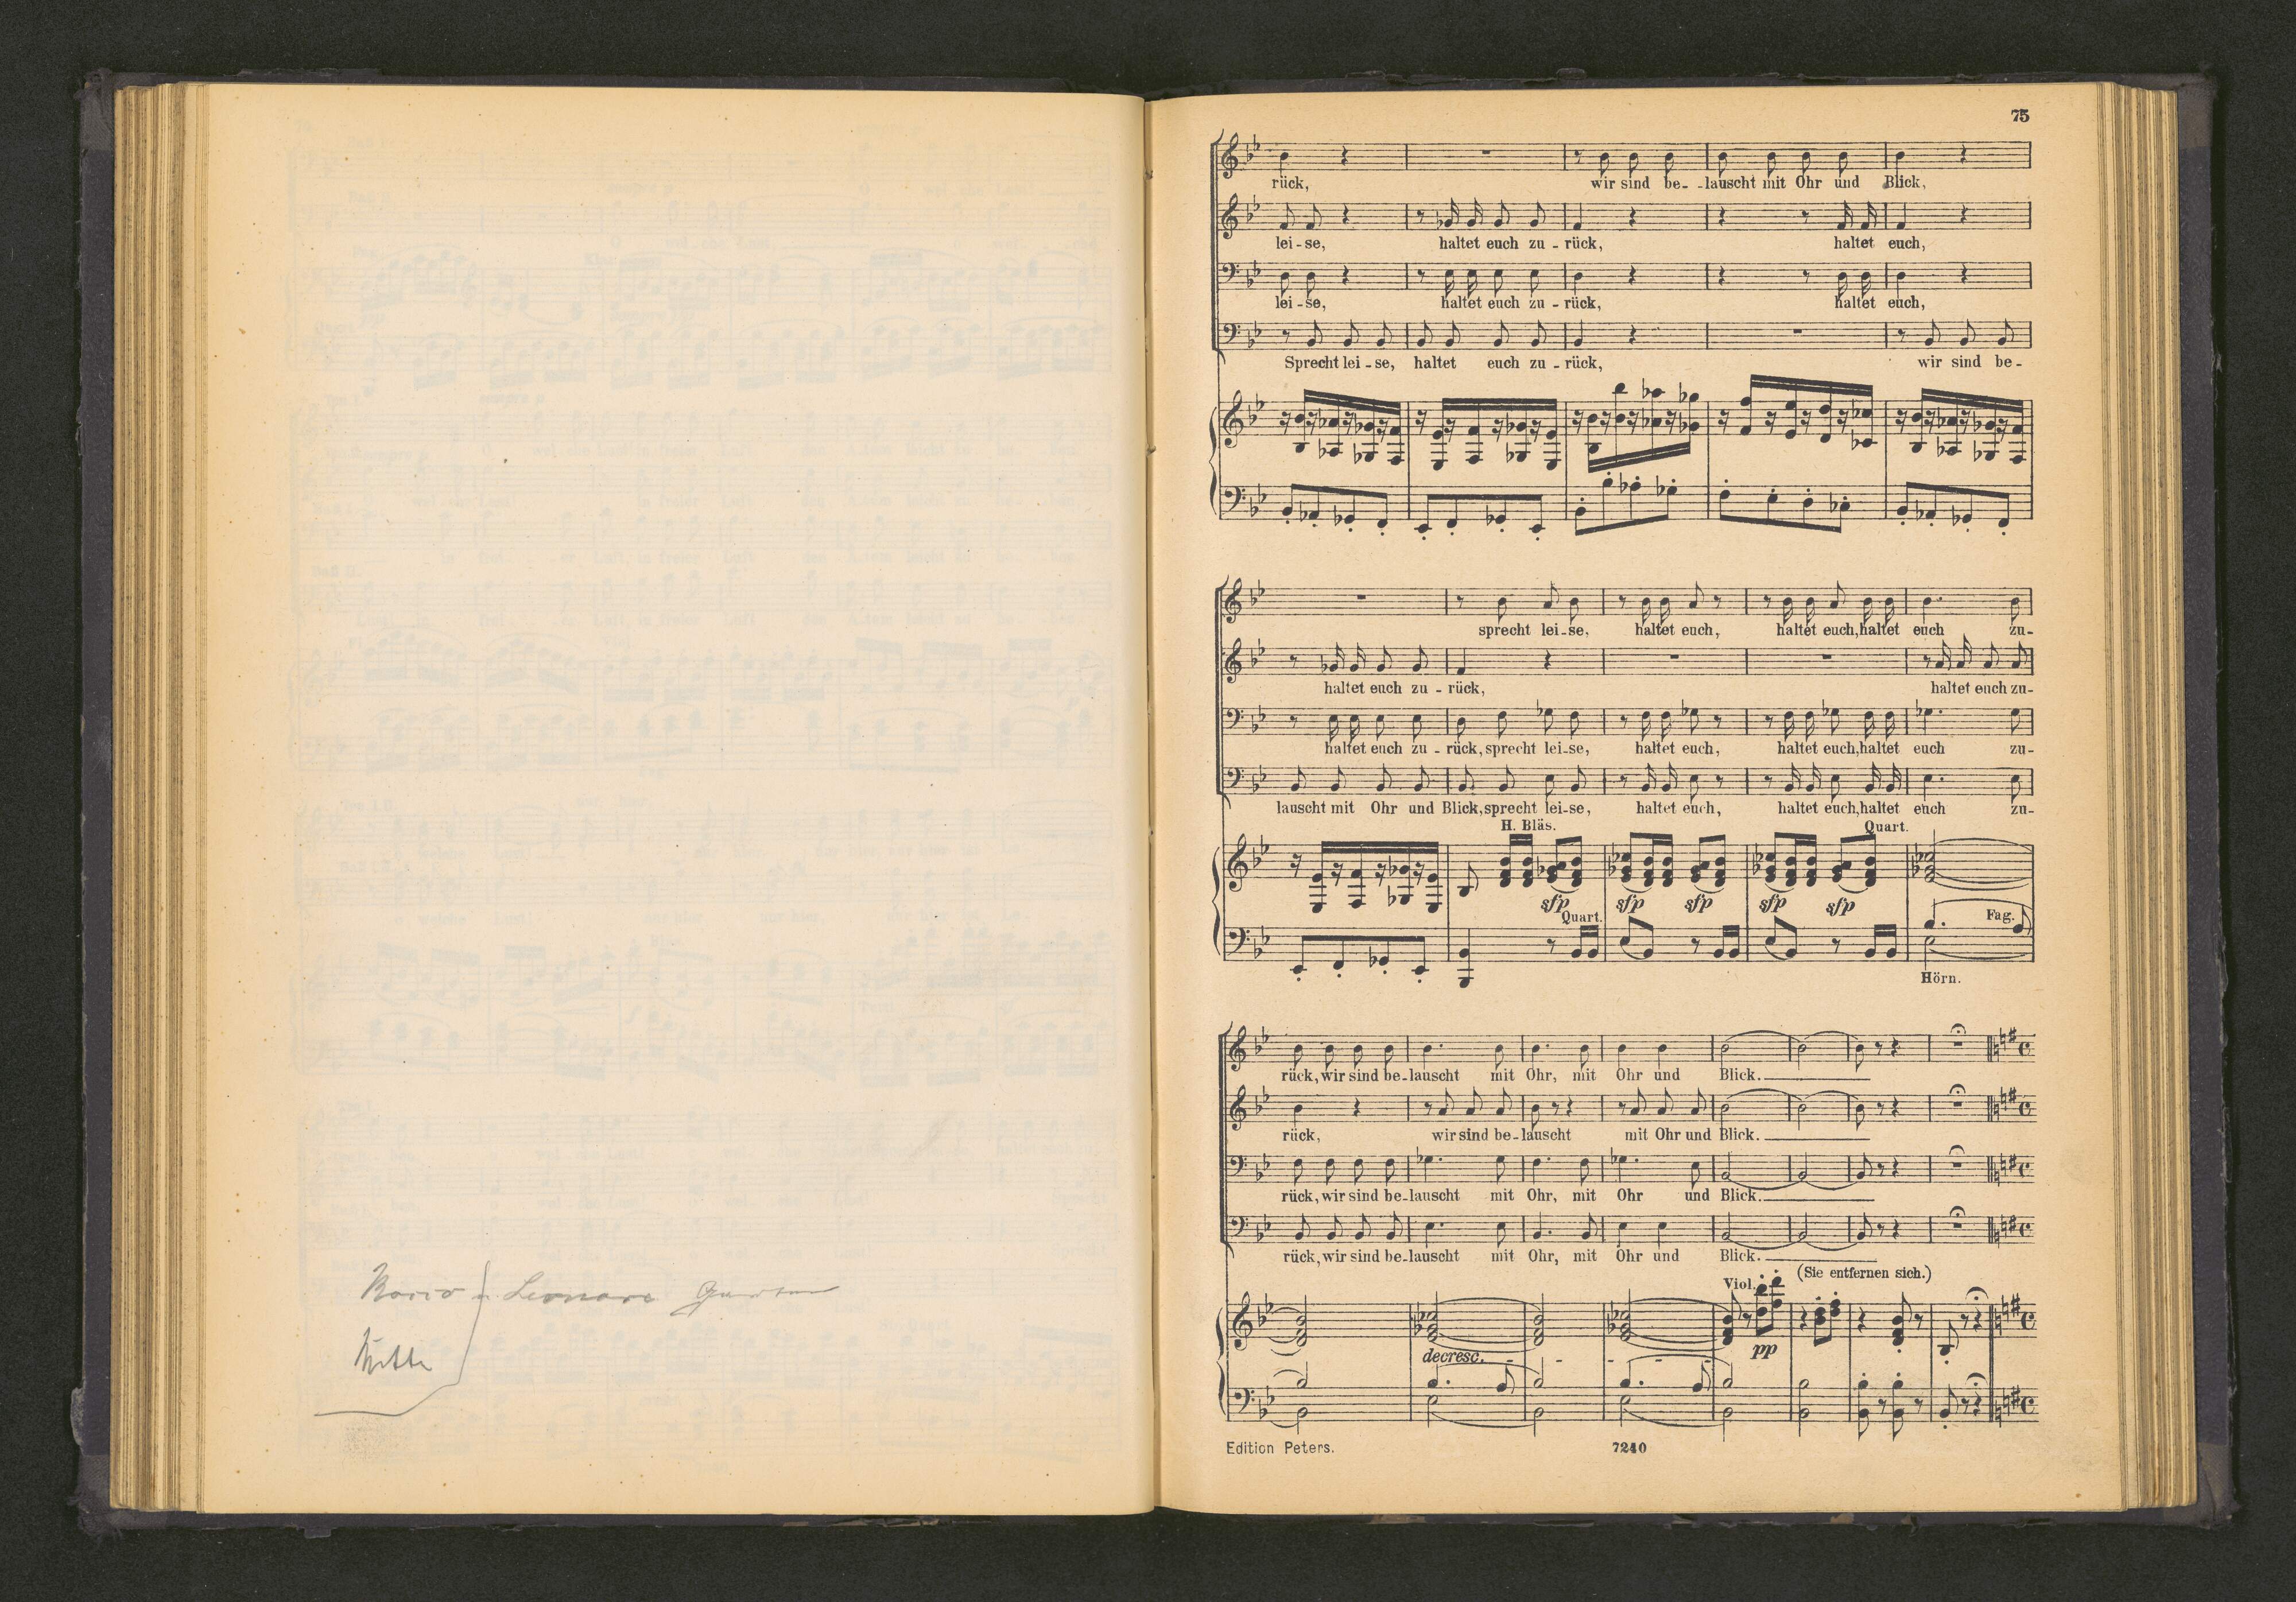 Mitte
75
rück, wir sind be- -lauscht mit Ohr und Blick,
lei-se, haltet euch zu-rück, haltet euch,
lei-se, haltet euch zu-rück, haltet euch,
Sprecht lei-se, haltet euch zu-rück, wir sind be-
sprecht lei-se, haltet euch, haltet euch, haltet euch zu-
haltet euch zu-rück, haltet euch zu-
haltet euch zu-rück, sprecht lei-se, haltet euch, haltet euch, haltet euch zu-
lauscht mit Ohr und Blick, sprecht lei-se, haltet euch, haltet euch, haltet euch zu-
H. Bläs. Quart.
sfp sfp sfp sfp sfp
Quart. Fag.
Hörn.
rück, wir sind be-lauscht mit Ohr, mit Ohr und Blick.
rück, wir sind be-lauscht mit Ohr und Blick.
rück, wir sind be-lauscht mit Ohr, mit Ohr und Blick.
rück, wir sind be-lauscht mit Ohr, mit Ohr und Blick.
(Sie entfernen sich.)
Viol.
decresc. pp
Edition Peters. 7240